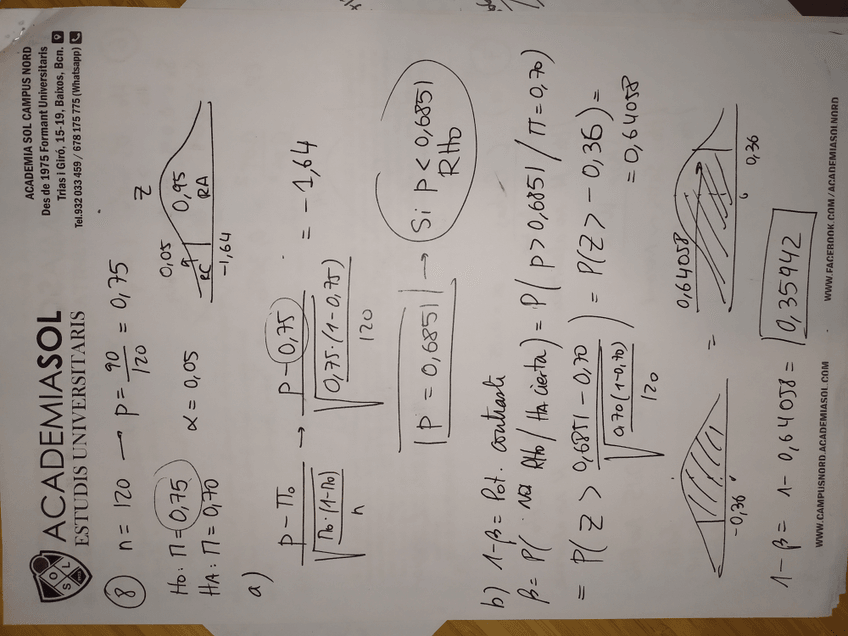 ACADEMIASOL
ESTUDIS UNIVERSITARIS
ACADEMIA SOL CAMPUS NORD
Des de 1975 Formant Universitaris
Trias i Giró, 15-19, Baixos, Bcn.
Tel.932 033 459 / 678 175 775 (Whatsapp)
SOL
8 n = 120 → p = 90/120 = 0,75
H0: Π = 0,75
HA: Π = 0,70
α = 0,05
Z
0,05
0,95
RC
RA
-1,64
a) (p - Π0)/√(Π0·(1-Π0)/n) → (p - 0,75)/√(0,75·(1-0,75)/120) = -1,64
P = 0,6851 → Si p < 0,6851
RH0
b) 1-β = Pot. contraste
β = P( no RH0 / HA cierta) = P( p > 0,6851 / Π = 0,70)
= P( Z > (0,6851 - 0,70)/√(0,70(1-0,70)/120) ) = P(Z > -0,36) =
= 0,64058
-0,36
=
0,64058
0,36
1-β = 1 - 0,64058 = 0,35942
WWW.CAMPUSNORD.ACADEMIASOL.COM
WWW.FACEBOOK.COM/ACADEMIASOLNORD